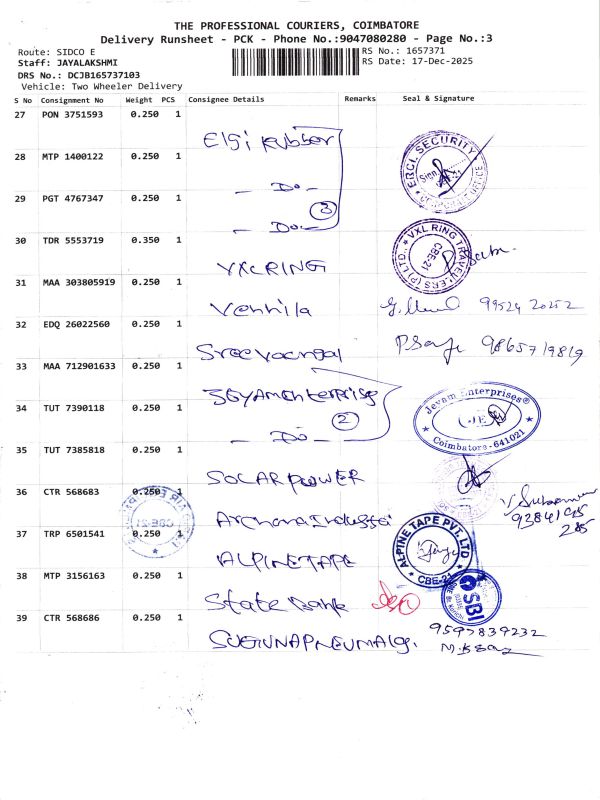 THE PROFESSIONAL COURIERS, COIMBATORE
Delivery Runsheet - PCK - Phone No.:9047080280 - Page No.:3
Route: SIDCO E
RS No.: 1657371
Staff: JAYALAKSHMI
RS Date: 17-Dec-2025
DRS No.: DCJB165737103
Vehicle: Two Wheeler Delivery
S No Consignment No Weight PCS Consignee Details Remarks Seal & Signature
27 PON 3751593 0.250 1
Elgi Rubber
28 MTP 1400122 0.250 1
- Do -
ERCL SECURITY
CORPORATE OFFICE
29 PGT 4767347 0.250 1
3
- Do -
30 TDR 5553719 0.350 1
VXL RING
VXL RING TRAVELLERS (P) LTD.,
CBE-21
31 MAA 303805919 0.250 1
Vennila
99524 20252
32 EDQ 26022560 0.250 1
98657 19819
33 MAA 712901633 0.250 1
34 TUT 7390118 0.250 1
2
- Do -
Jevam Enterprises®
JE
Coimbatore-641021
35 TUT 7385818 0.250 1
SOLAR POWER
36 CTR 568683 0.250 1
CBE-21
37 TRP 6501541 0.250 1
ALPINE TAPE
ALPINE TAPE PVT. LTD
CBE-21
38 MTP 3156163 0.250 1
State Bank
SBI
39 CTR 568686 0.250 1
9597839232